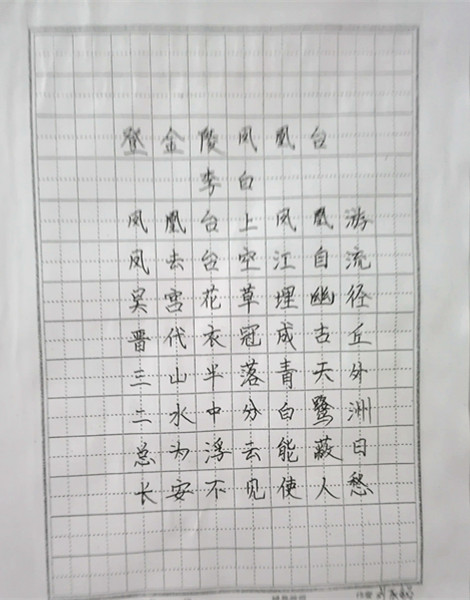 登金陵凤凰台
李白
凤凰台上凤凰游
凤去台空江自流
吴宫花草埋幽径
晋代衣冠成古丘
三山半落青天外
二水中分白鹭洲
总为浮去能蔽日
长安不见使人愁